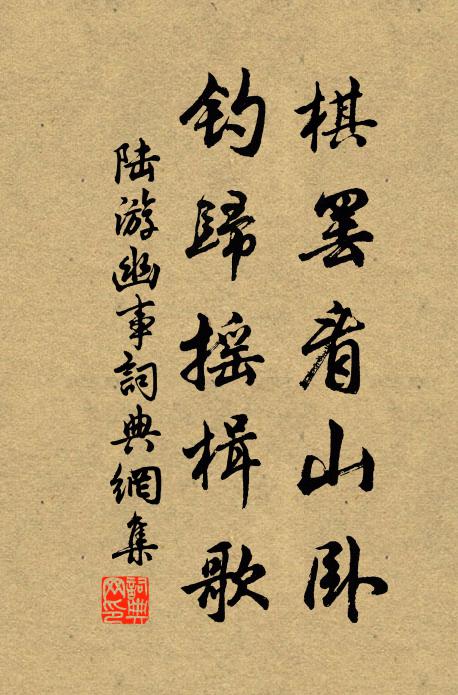 棋罢看山卧
钓歸摇楫歌
陆游幽事詞典網集
詞典网印